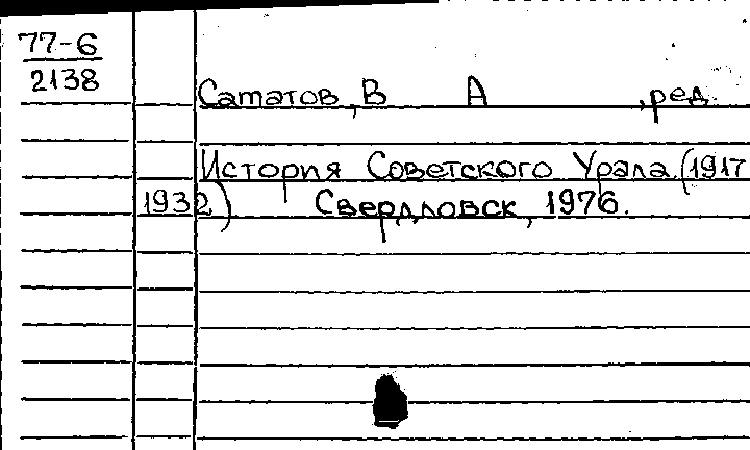 77-6
2138
Саматов, В А , ред.
История Советского Урала (1917
1932) Свердловск, 1976.